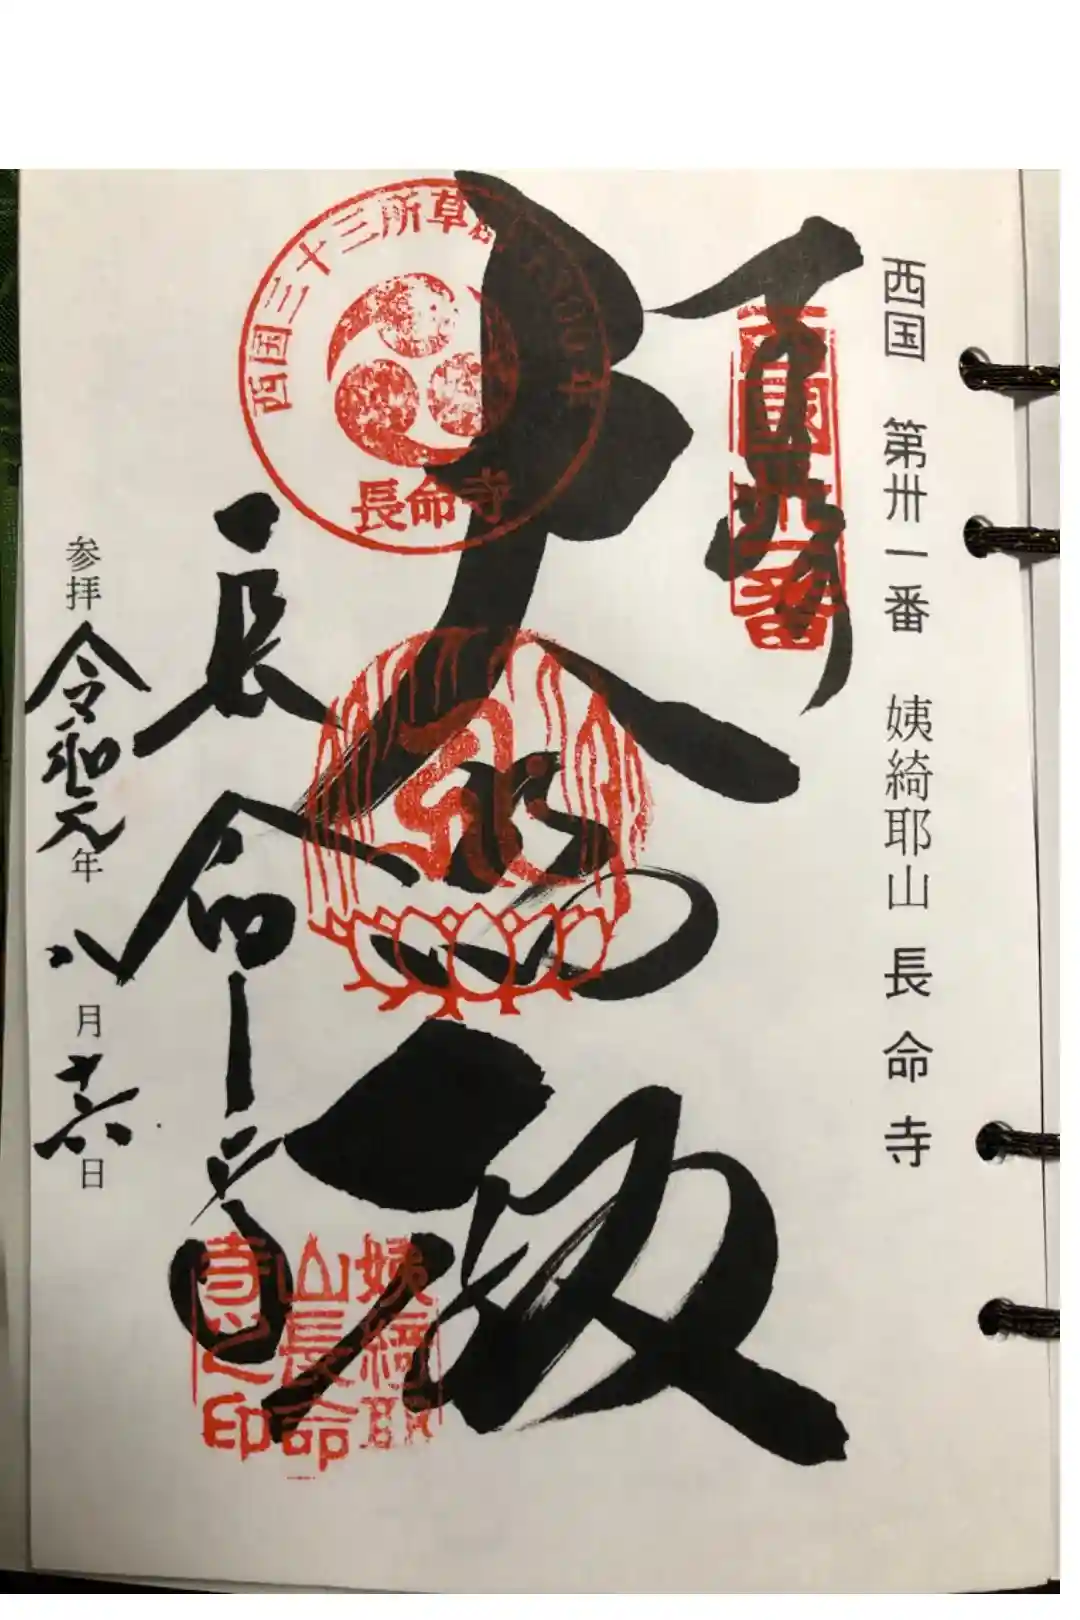 西国 第卅一番 姨綺耶山 長命寺
奉拝
西國卅一番
大悲殿
西国三十三所草創1300年
長命寺
長命寺
姨綺耶
山長命
寺之印
参拝 令和元年 八月 十六日